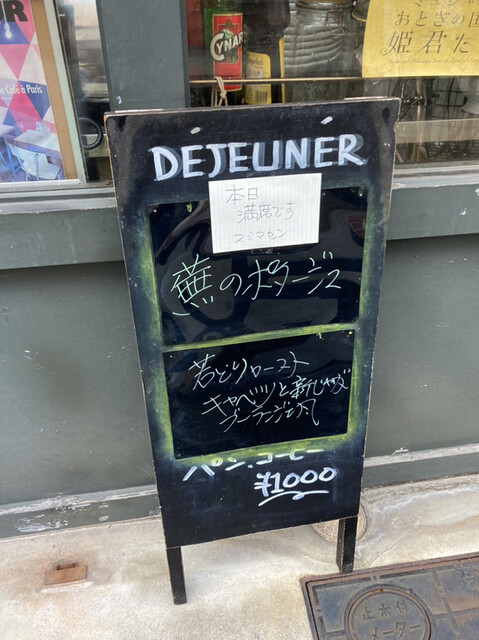 DEJEUNER
本日
満席です
スミマセン
蕪のポタージュ
若どりロースト
キャベツと新じゃが
ブーランジェ風
パン・コーヒー
¥1000
CYNAR
おとぎの国
姫君た
Café à Paris
止水栓
メーター